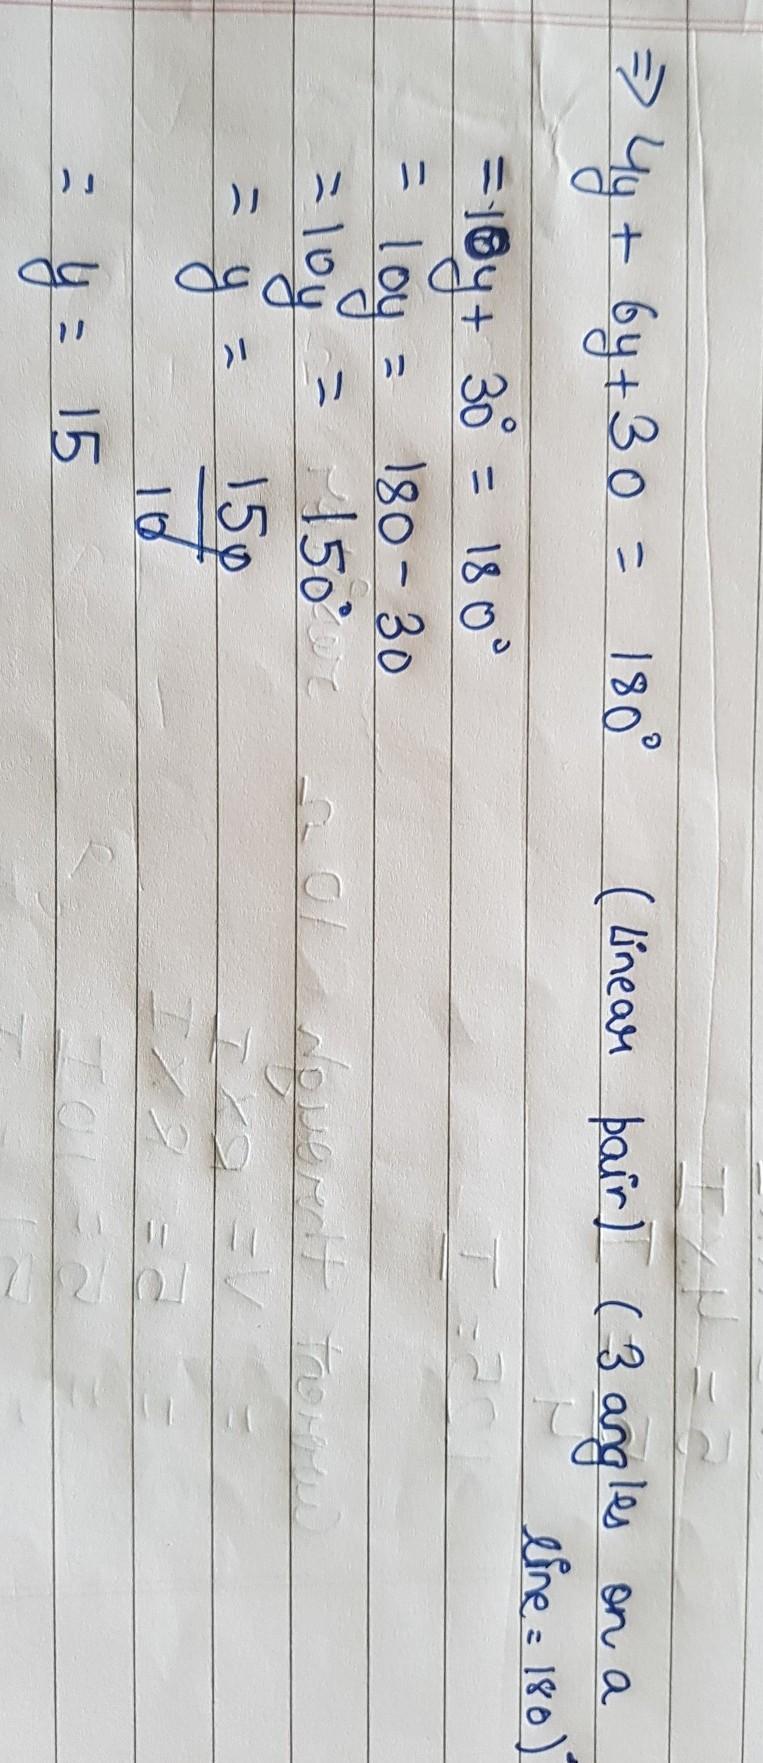 ⇒ 4y + 6y + 30 = 180° (linear pair) (3 angles on a
line = 180)
= 10y + 30° = 180°
= 10y = 180 - 30
= 10y = 150°
= y = 150
10
= y = 15